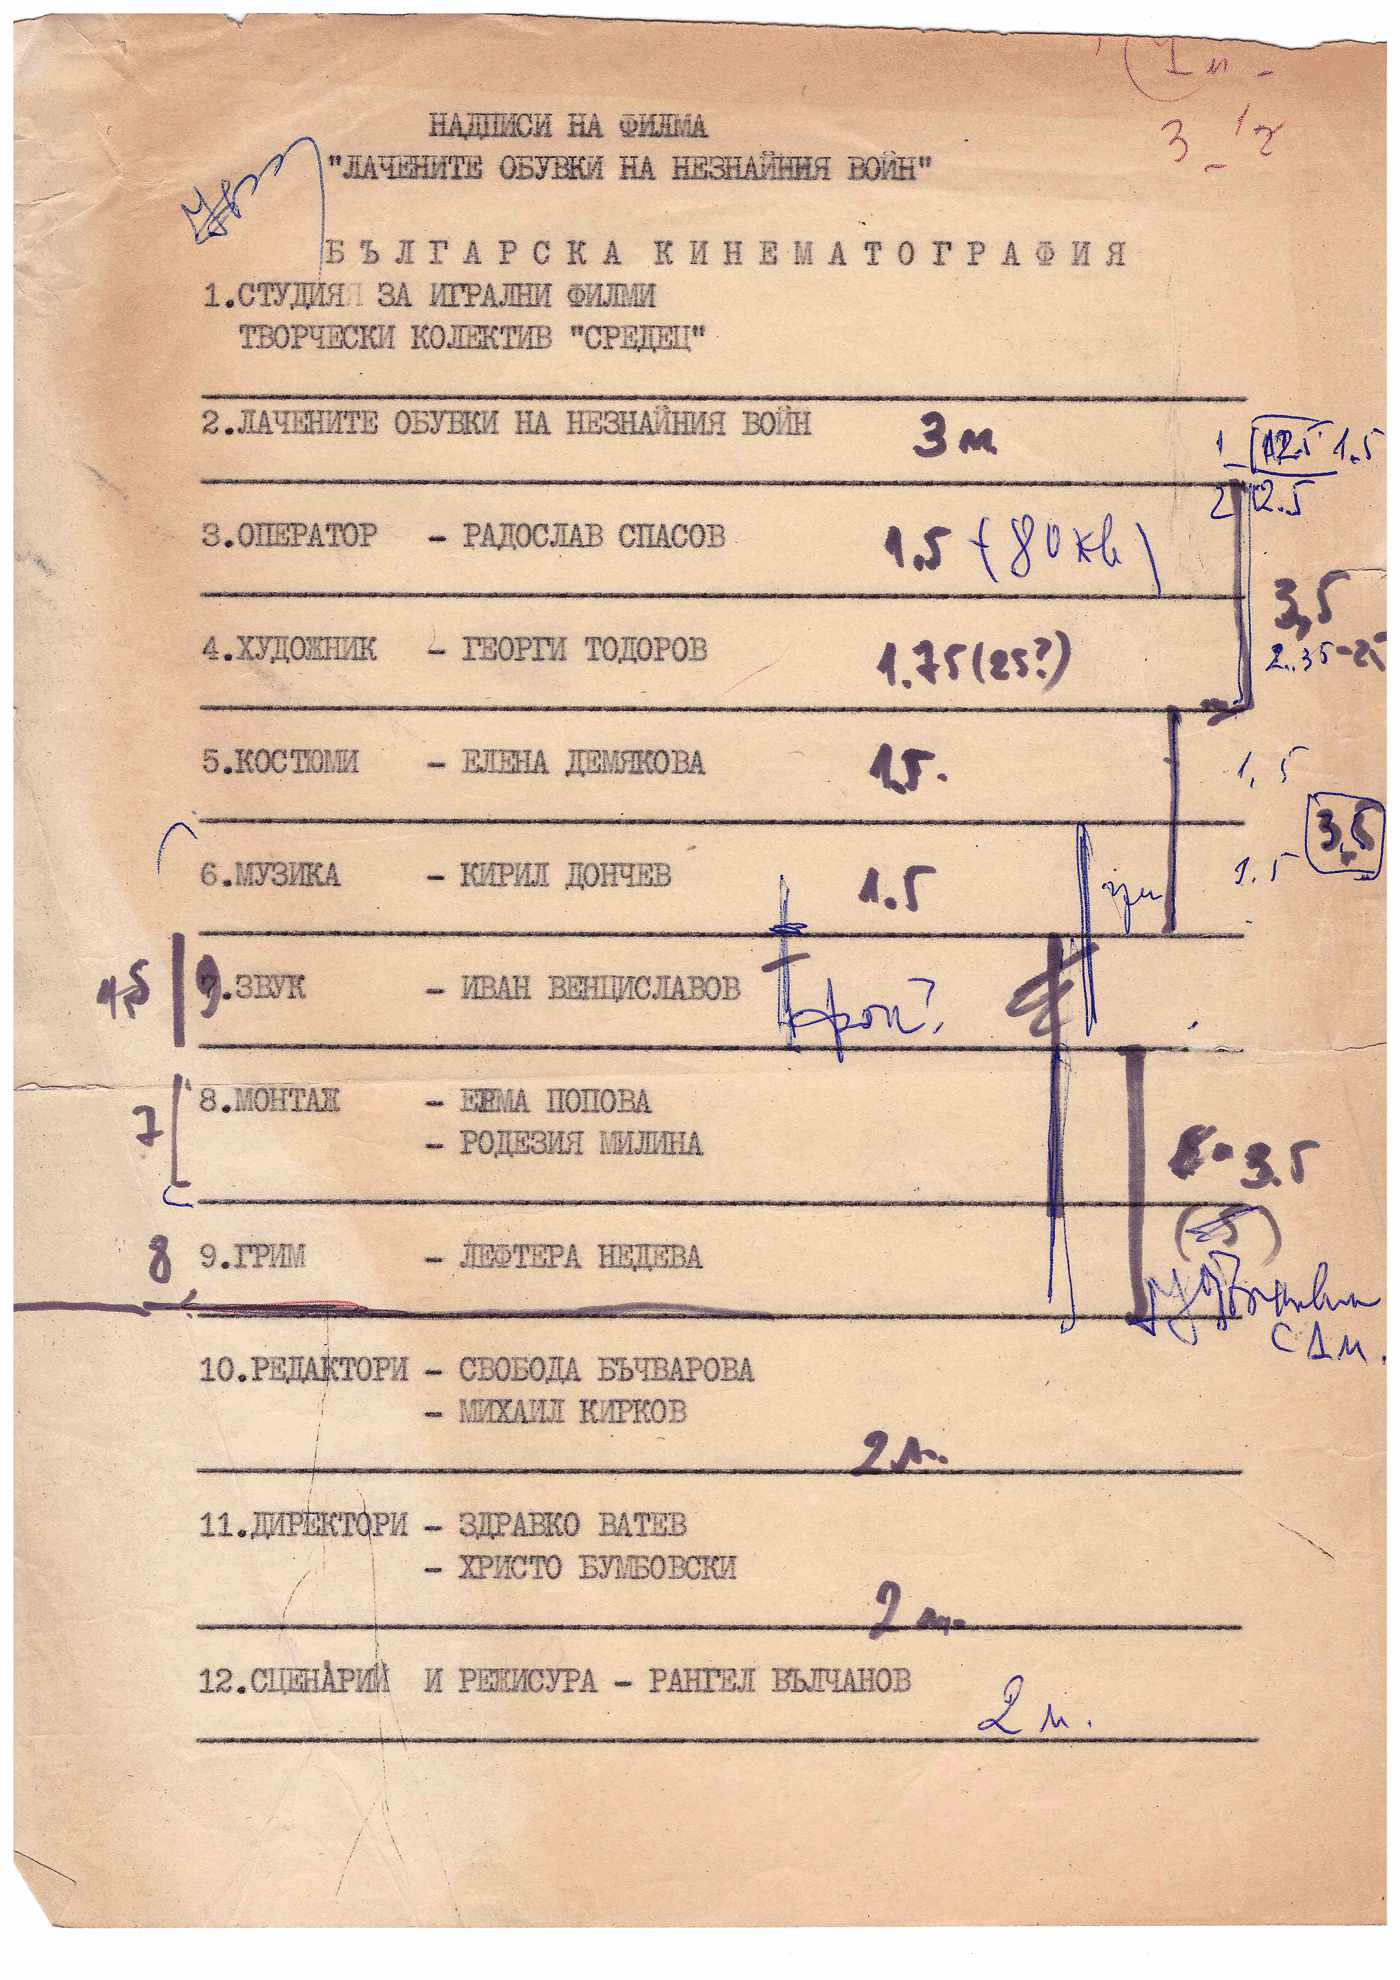 1 м -
3 -
НАДПИСИ НА ФИЛМА
"ЛАЧЕНИТЕ ОБУВКИ НА НЕЗНАЙНИЯ ВОЙН"
БЪЛГАРСКА КИНЕМАТОГРАФИЯ
1.СТУДИЯ ЗА ИГРАЛНИ ФИЛМИ
ТВОРЧЕСКИ КОЛЕКТИВ "СРЕДЕЦ"
2.ЛАЧЕНИТЕ ОБУВКИ НА НЕЗНАЙНИЯ ВОЙН 3 м
1 12.5 1.5
2 2.5
3.ОПЕРАТОР - РАДОСЛАВ СПАСОВ 1.5 (80 кв)
3,5
4.ХУДОЖНИК - ГЕОРГИ ТОДОРОВ 1.75 (25?)
2.35-25
5.КОСТЮМИ - ЕЛЕНА ДЕМЯКОВА 1.5. 1.5
3,5
6.МУЗИКА - КИРИЛ ДОНЧЕВ 1.5 1.5
4,5 9.ЗВУК - ИВАН ВЕНЦИСЛАВОВ
7 8.МОНТАЖ - ЕМА ПОПОВА
- РОДЕЗИЯ МИЛИНА 3.5
8 9.ГРИМ - ЛЕФТЕРА НЕДЕВА
с 1 м.
10.РЕДАКТОРИ - СВОБОДА БЪЧВАРОВА
- МИХАИЛ КИРКОВ
2 м.
11.ДИРЕКТОРИ - ЗДРАВКО ВАТЕВ
- ХРИСТО БУМБОВСКИ
2 м.
12.СЦЕНАРИЙ И РЕЖИСУРА - РАНГЕЛ ВЪЛЧАНОВ
2 м.